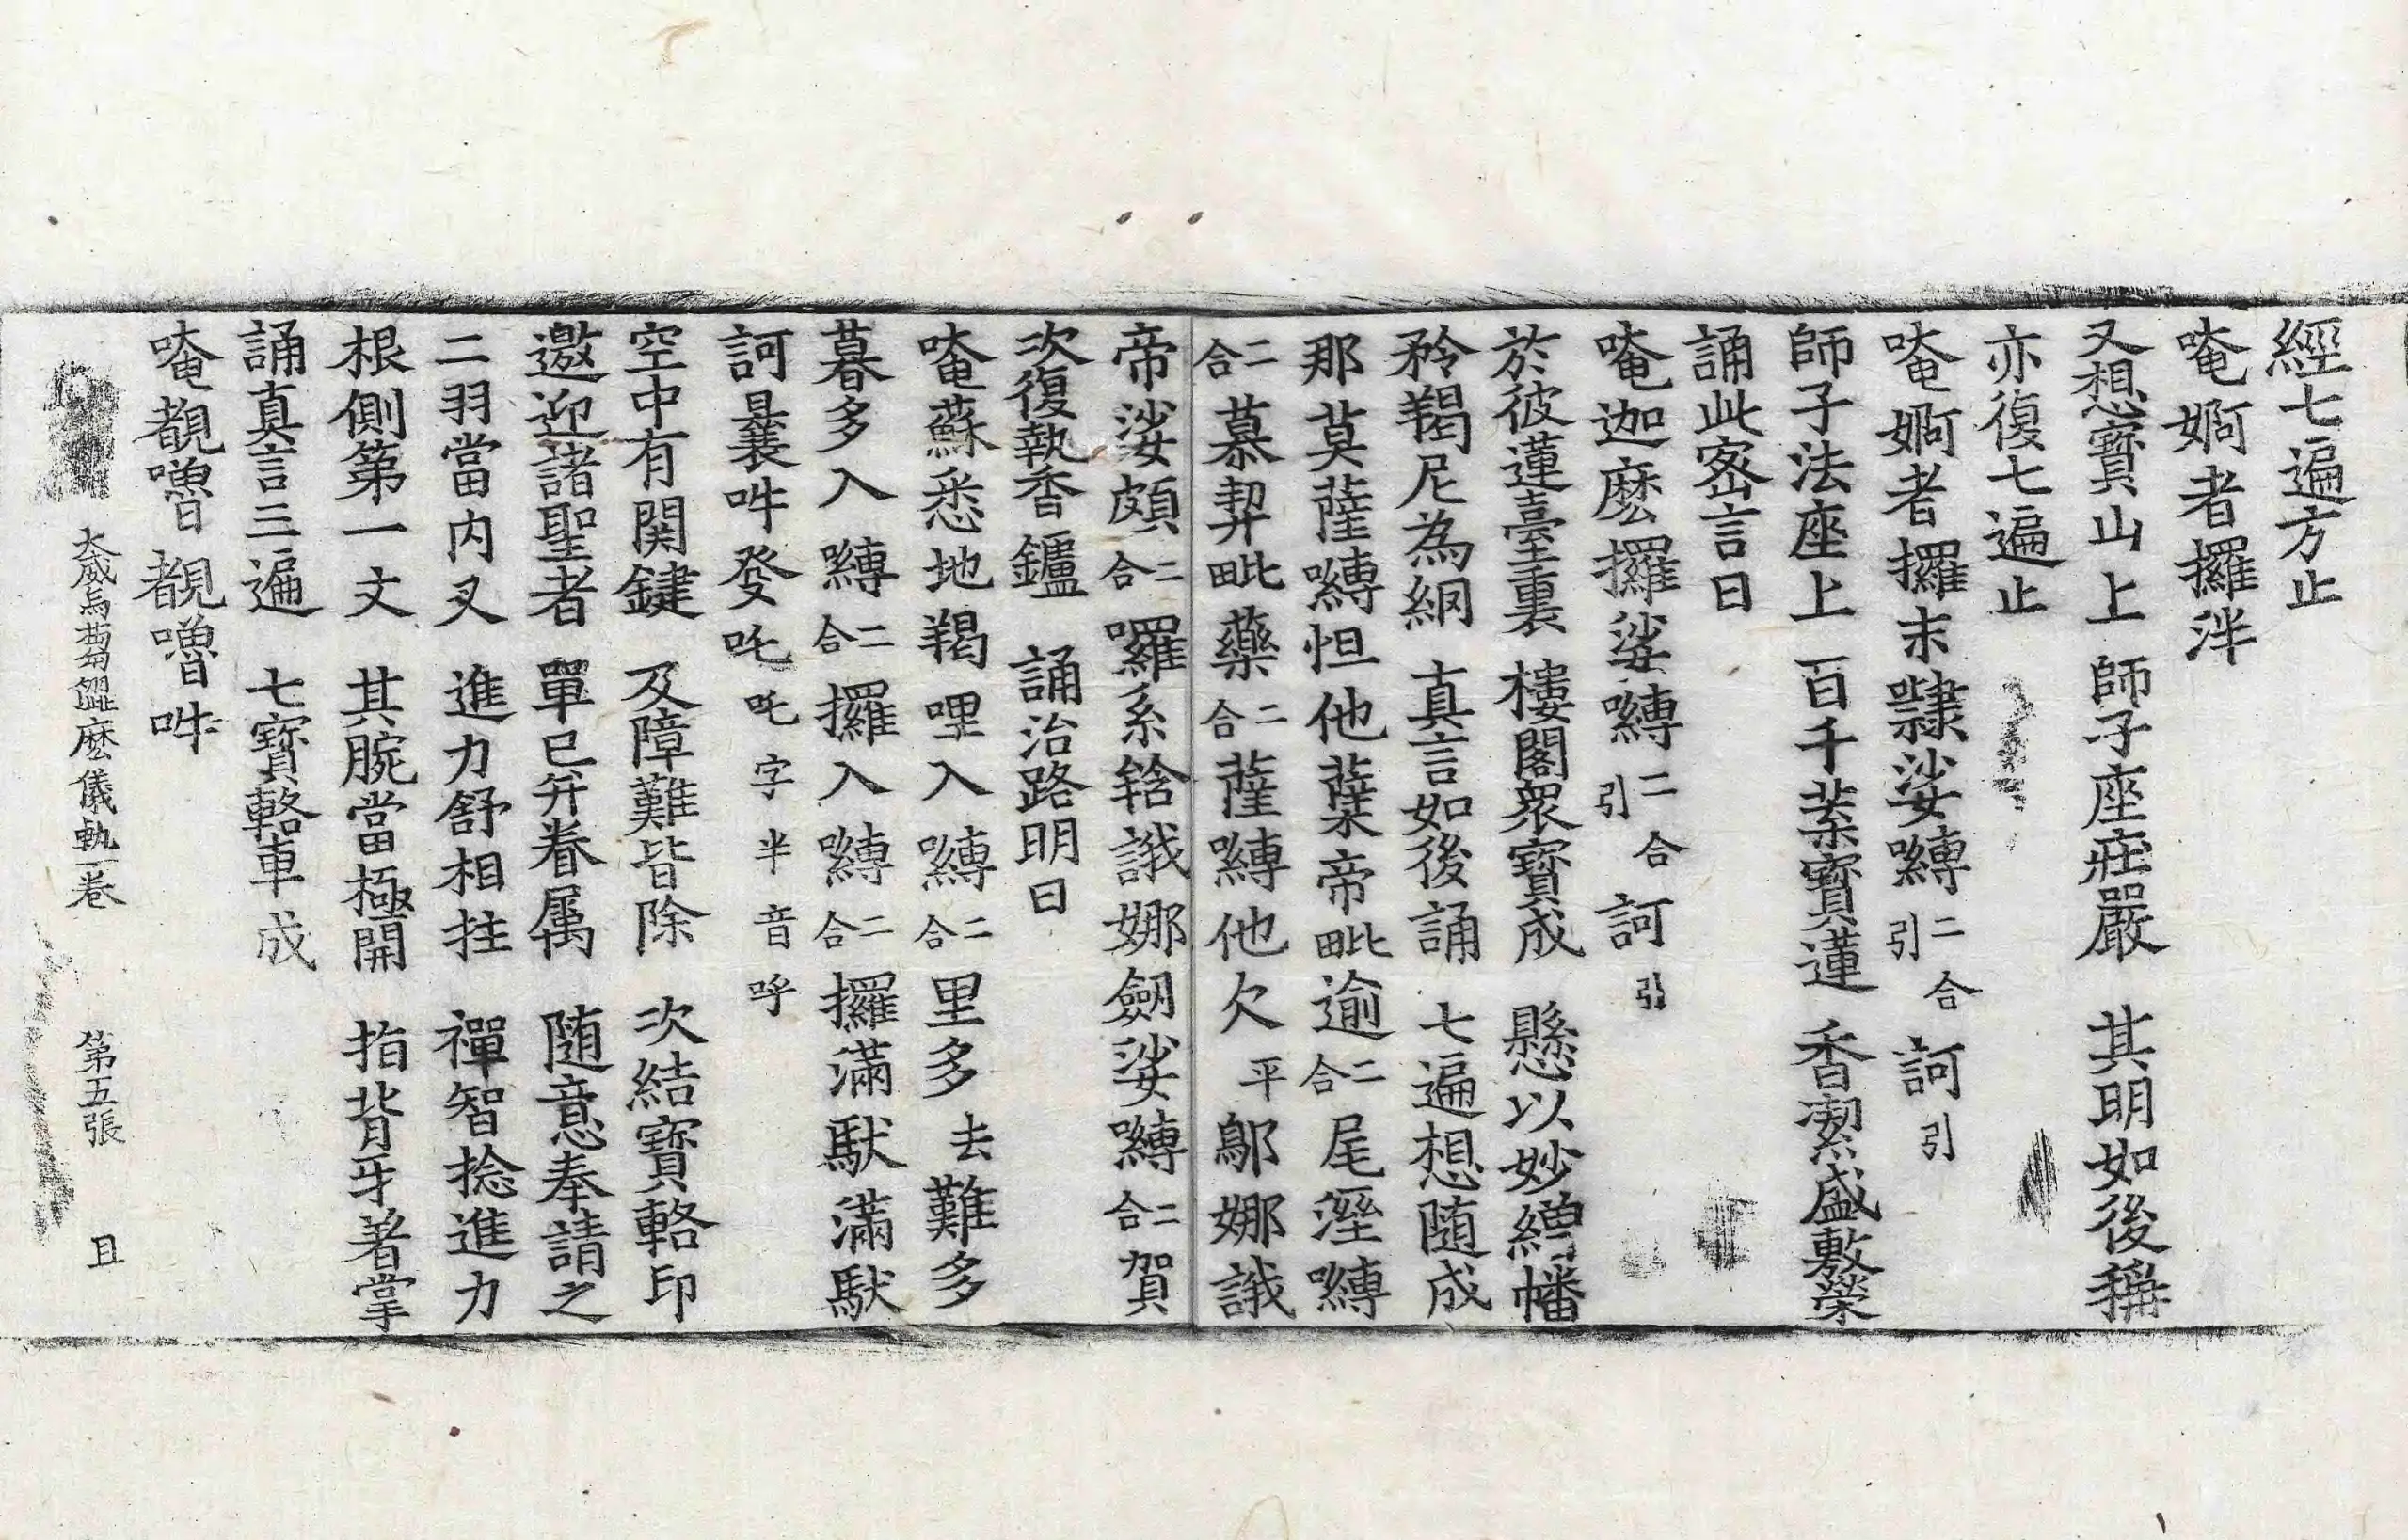 經七遍方止
唵婀者攞泮
又想寶山上　師子座莊嚴　其明如後稱
亦復七遍止
唵婀者攞末隸娑嚩二合引訶引
師子法座上　百千葉寶蓮　香潔盛敷榮
誦此密言曰
唵迦麽攞娑嚩二合引訶引
於彼蓮臺裏　樓閣衆寶成　懸以妙繒幡
矜羯尼為網　真言如後誦　七遍想随成
那莫薩嚩怛他蘖帝毗逾二合尾溼嚩
二合慕契毗藥二合薩嚩他欠平鄔娜誐
帝娑頗二合囉系𨉖誐娜劒娑嚩二合賀
次復執香鑪　誦治路明曰
唵蘇悉地羯哩入嚩二合里多去難多
暮多入嚩二合攞入嚩二合攞滿馱滿馱
訶曩吽發吒吒字半音呼
空中有関鍵　及障難皆除　次結寶輅印
邀迎諸聖者　單已并眷属　随意奉請之
二羽當内叉　進力舒相拄　禪智捻進力
根側第一文　其腕當極開　指背牙著掌
誦真言三遍　七寶輅車成
唵覩嚕覩嚕吽
大威烏蒭澀麽儀軌一卷　第五張　且